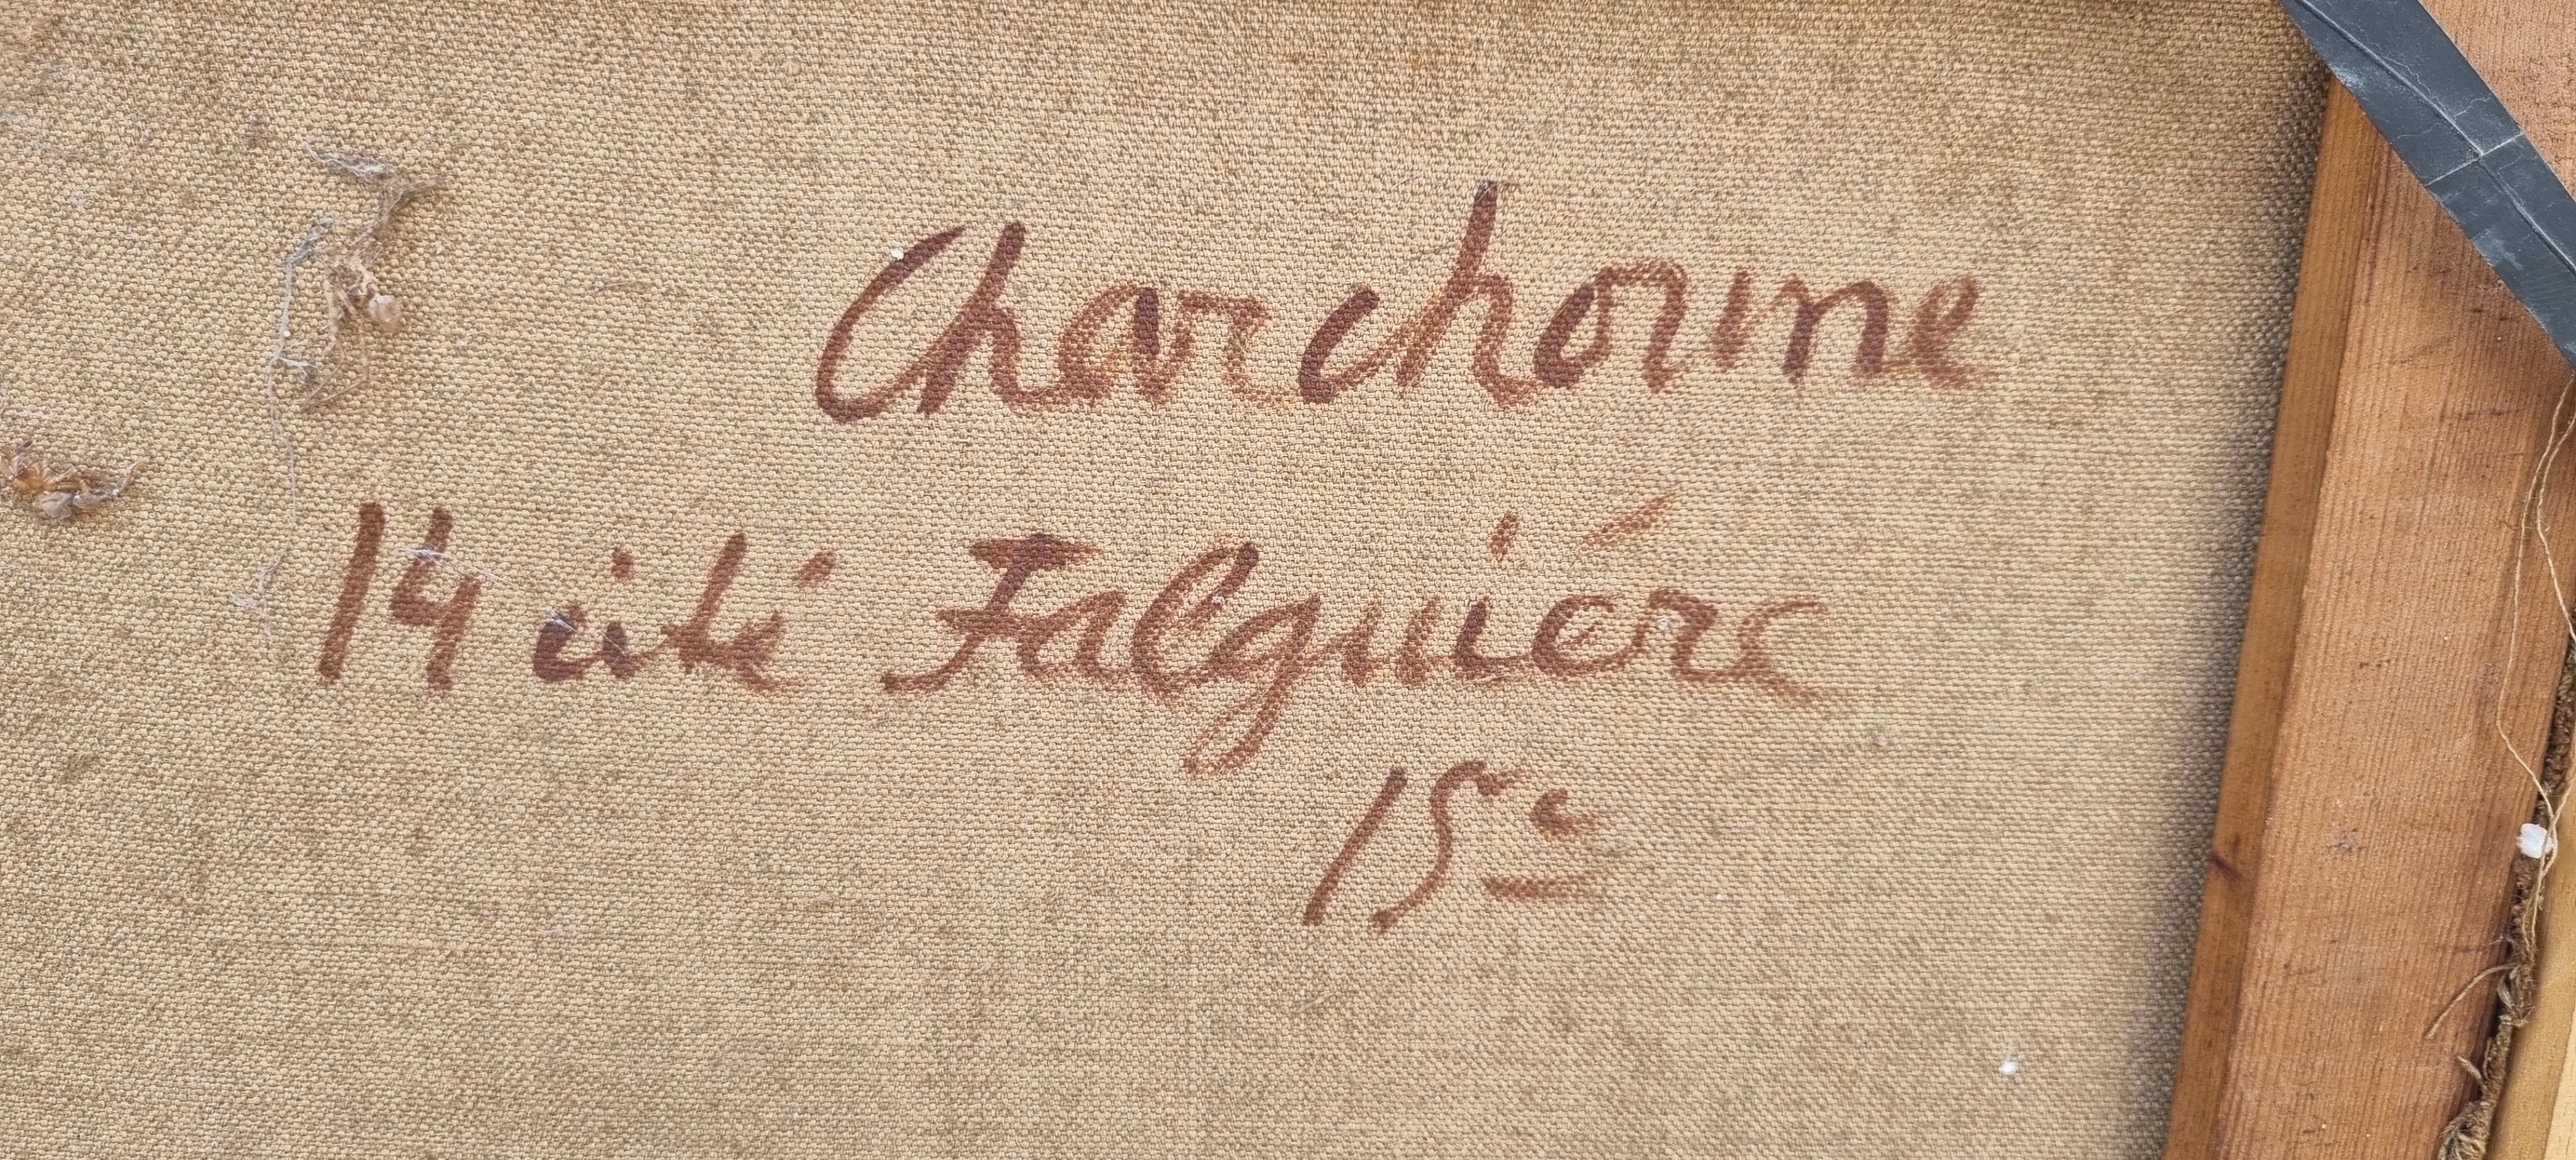 Charchoune
14 cité Falguiére
15e